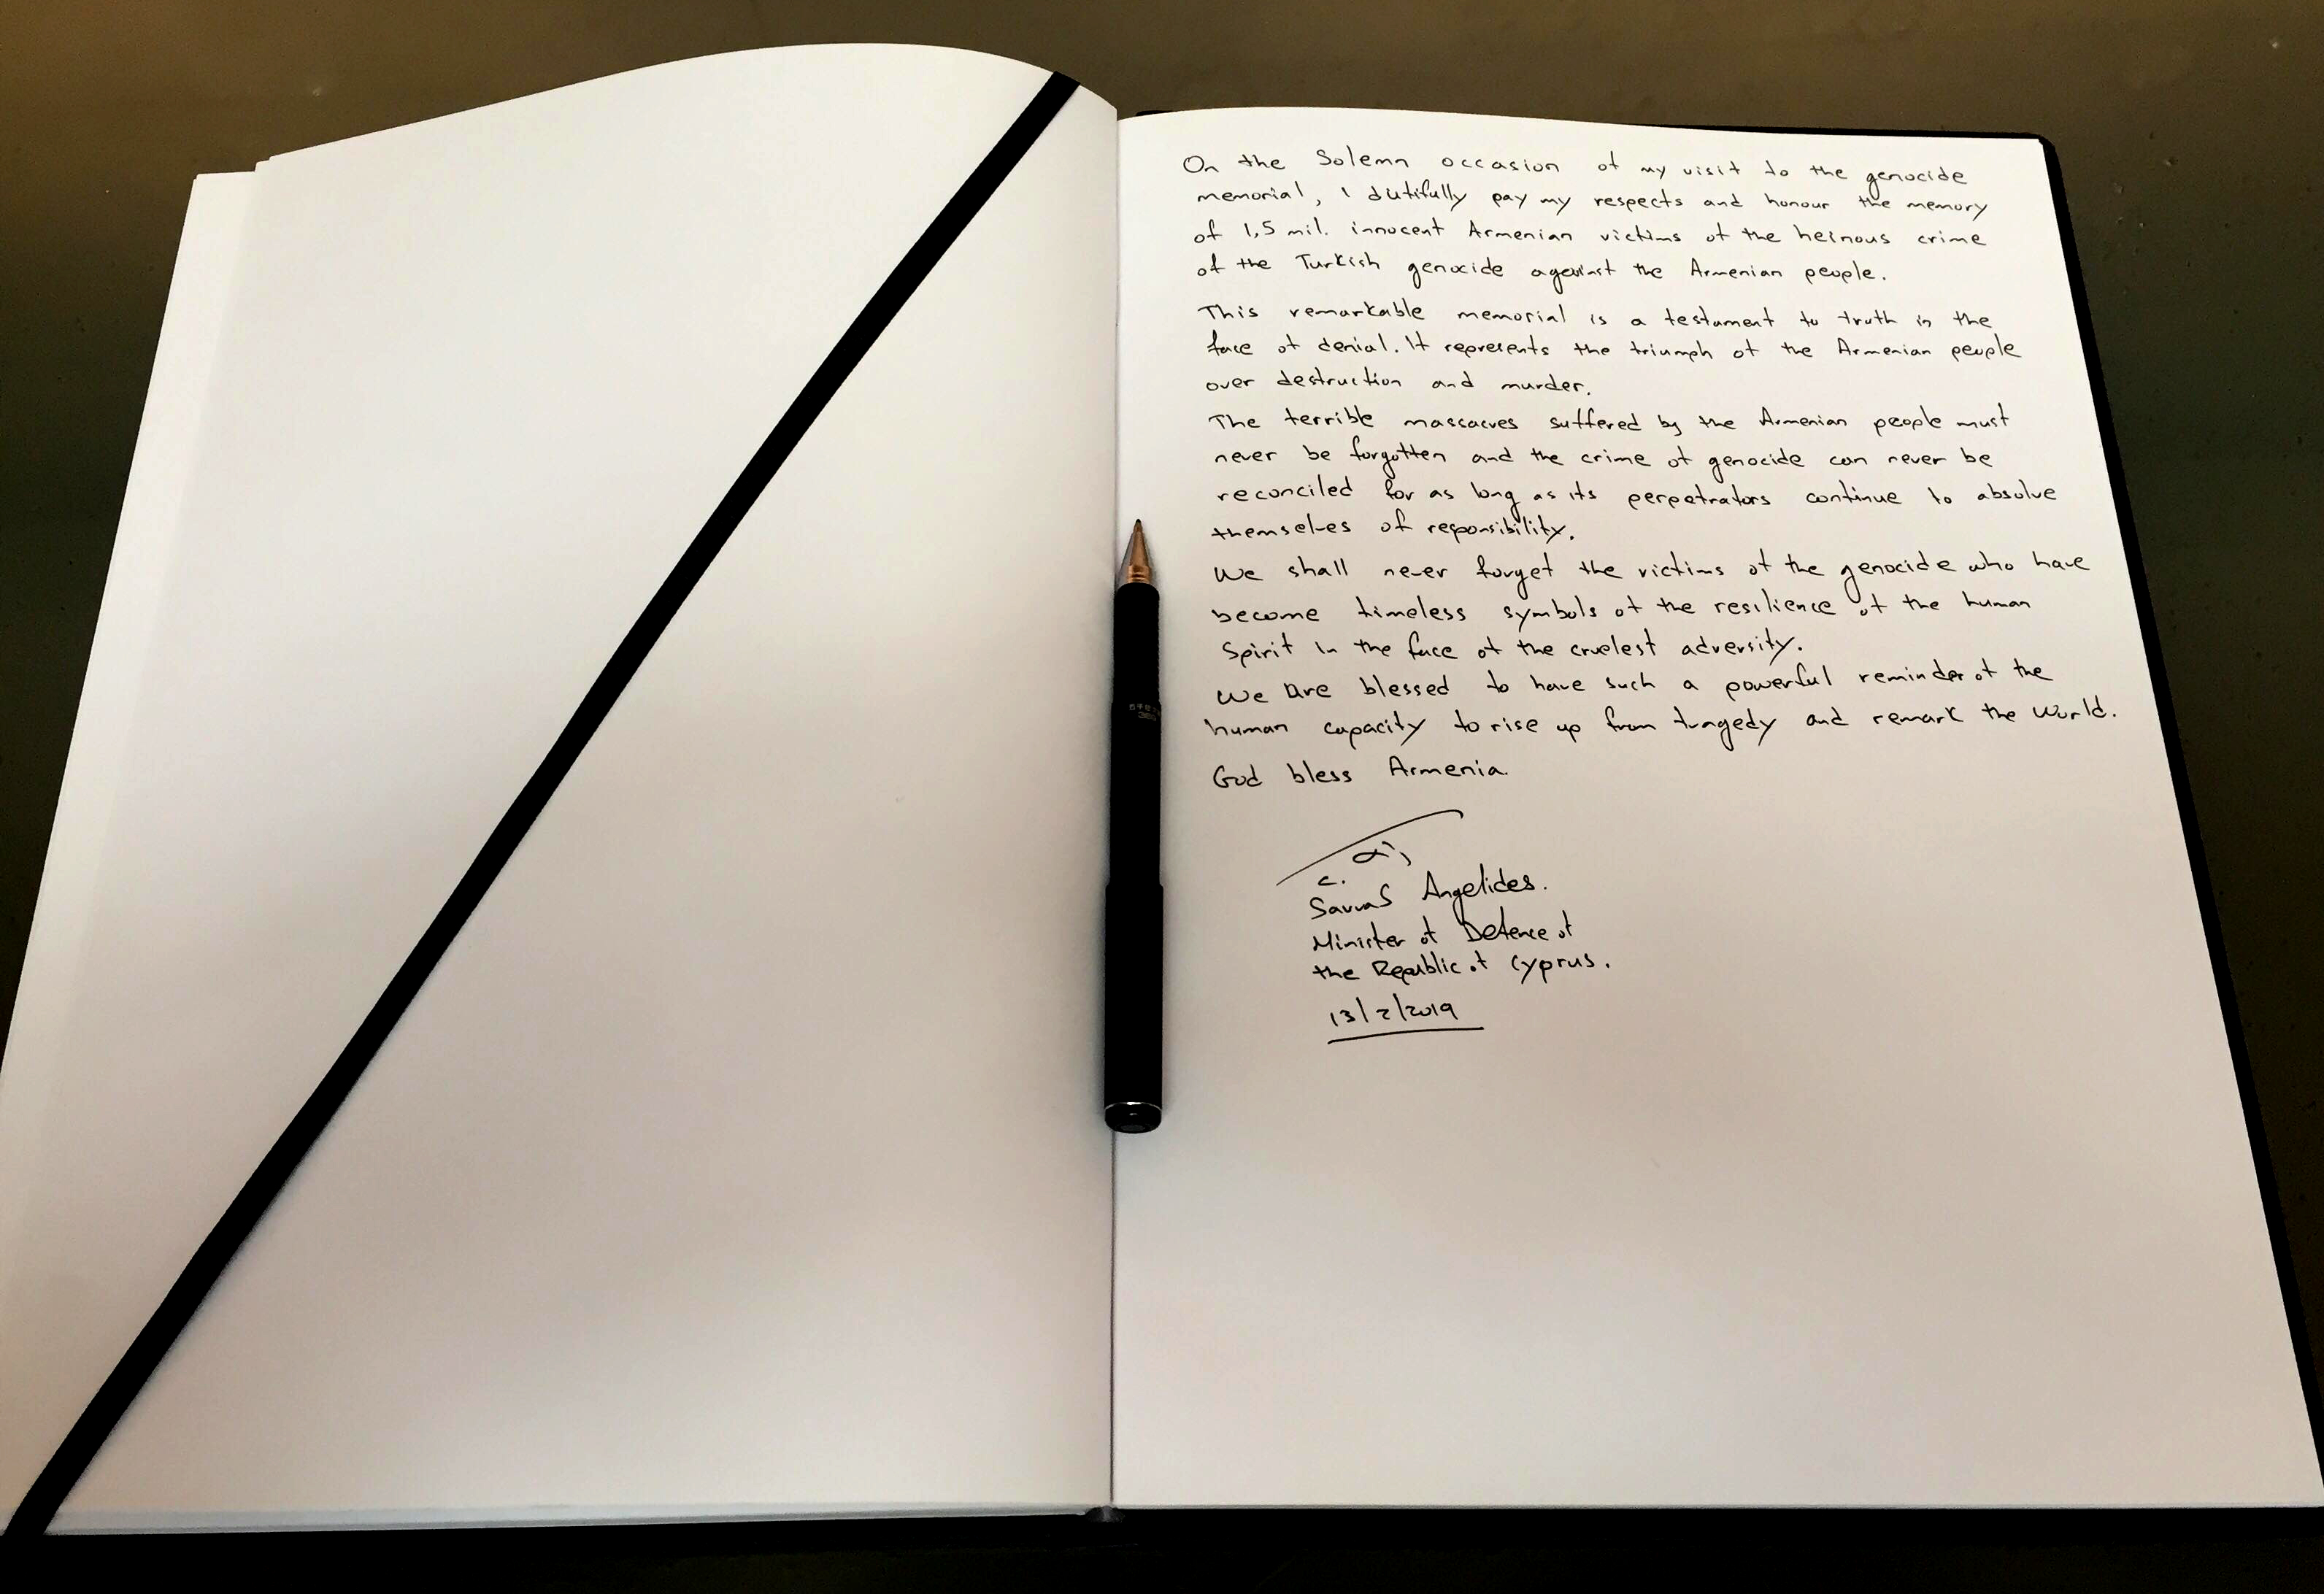 On the Solemn occasion of my visit to the genocide
memorial, I dutifully pay my respects and honour the memory
of 1,5 mil. innocent Armenian victims of the heinous crime
of the Turkish genocide against the Armenian people.
This remarkable memorial is a testament to truth in the
face of denial. It represents the triumph of the Armenian people
over destruction and murder.
The terrible massacres suffered by the Armenian people must
never be forgotten and the crime of genocide can never be
reconciled for as long as its perpetrators continue to absolve
themselves of responsibility.
We shall never forget the victims of the genocide who have
become timeless symbols of the resilience of the human
Spirit in the face of the cruelest adversity.
We are blessed to have such a powerful reminder of the
human capacity to rise up from tragedy and remark the World.
God bless Armenia.
Savvas Angelides.
Minister of Defence of
the Republic of Cyprus.
13/2/2019